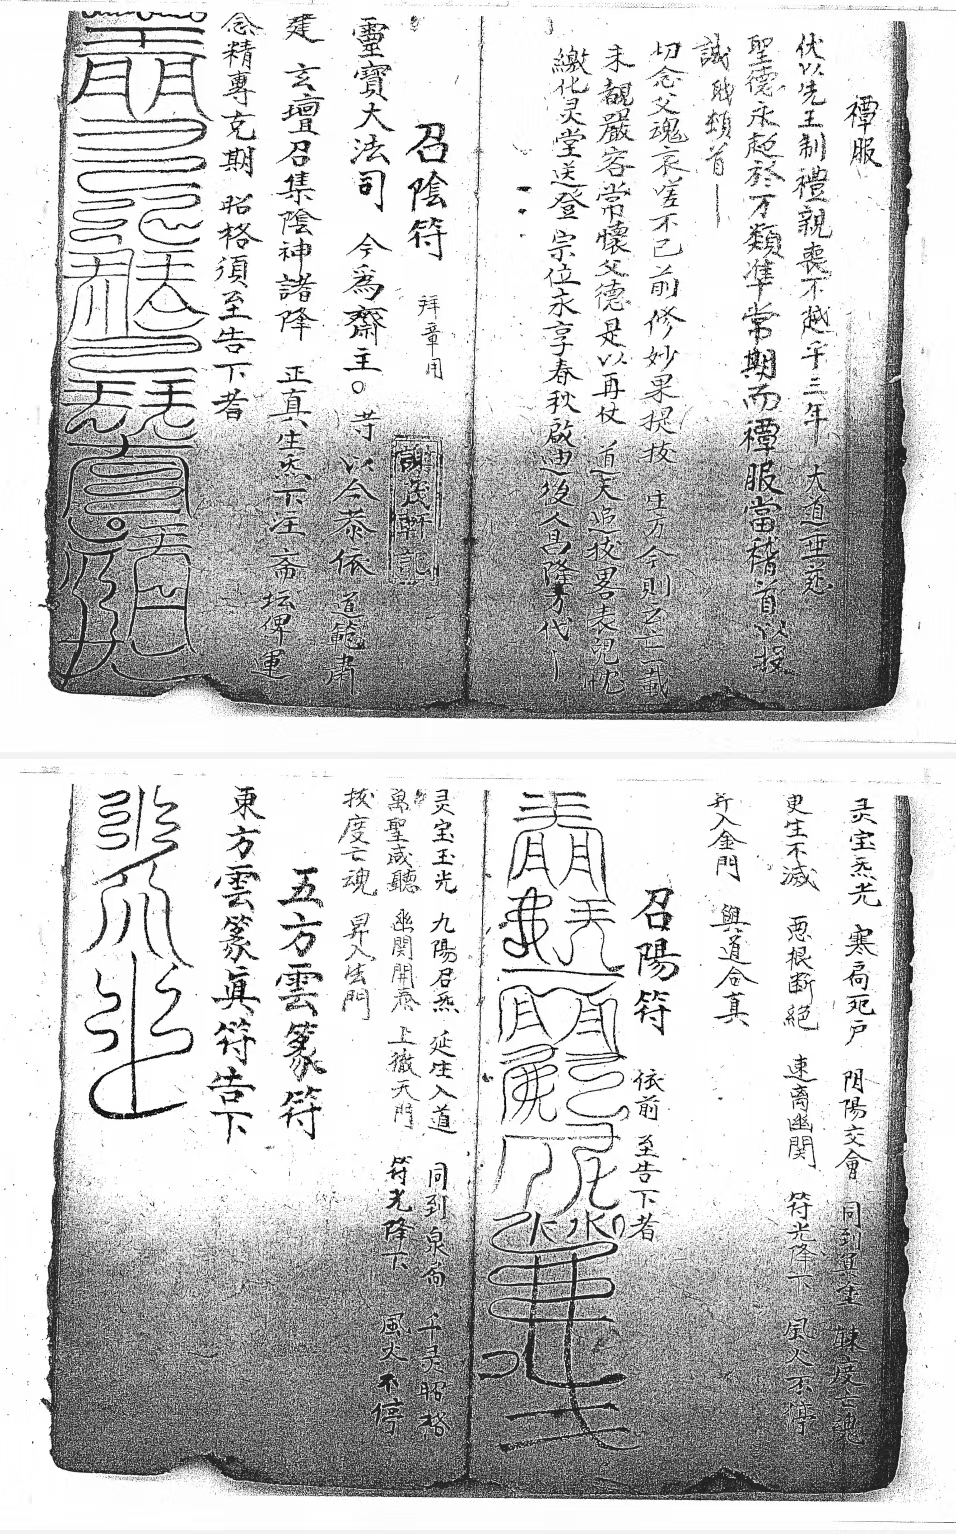 禫服
伏以先王制禮親喪不越乎三年 大道垂慈
聖德永超於万類準常期而禫服當稽首以投
誠 首
切念父魂哀嗟不已前修妙果提拔 生方今則云亡二載
未覩嚴容常懷父德是以再仗 道天追拔畧表兒忱
繳化灵堂送登 宗位永享春秋啟迪後人昌隆万代
召陰符 拜章用
謝茂軒記
靈寶大法司 今為齋主○等以今恭依 道範肅
建 玄壇召集陰神諸降 正真生炁下注斋 坛俾運
念精專克期 昭格須至告下者
灵宝炁光 寒扃死户 陰陽交會 同到 度亡魂
更生不滅 惡根断絕 速离幽関 符光降下 風火不停
升入金門 與道合真
召陽符 依前 至告下者
灵宝玉光 九陽召炁 延生入道 同到泉扃 千灵昭格
萬聖咸聽 幽関開 上徹天門 符光降下 風火不停
拔度亡魂 昇入法門
五方雲篆符
東方雲篆真符告下